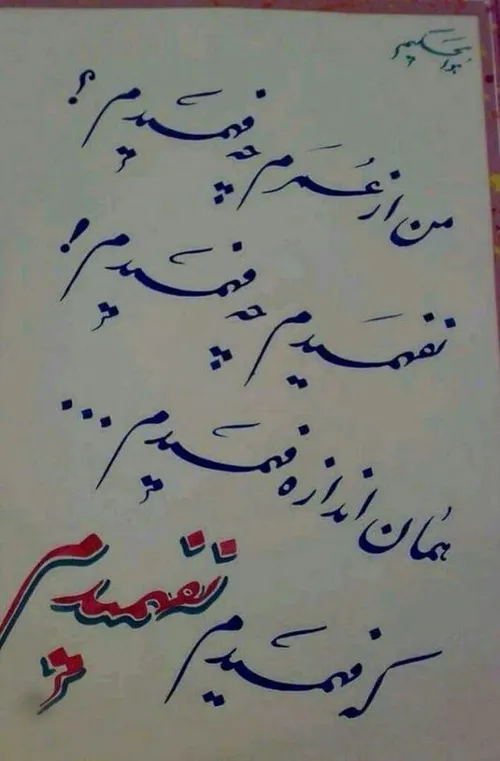 هوالحکیم
من از عُمرَم چه فهمیدم ؟
نفهمیدم چه فهمیدم !
همان اندازه فهمیدم ...
که فهمیدم
نفهمیدم